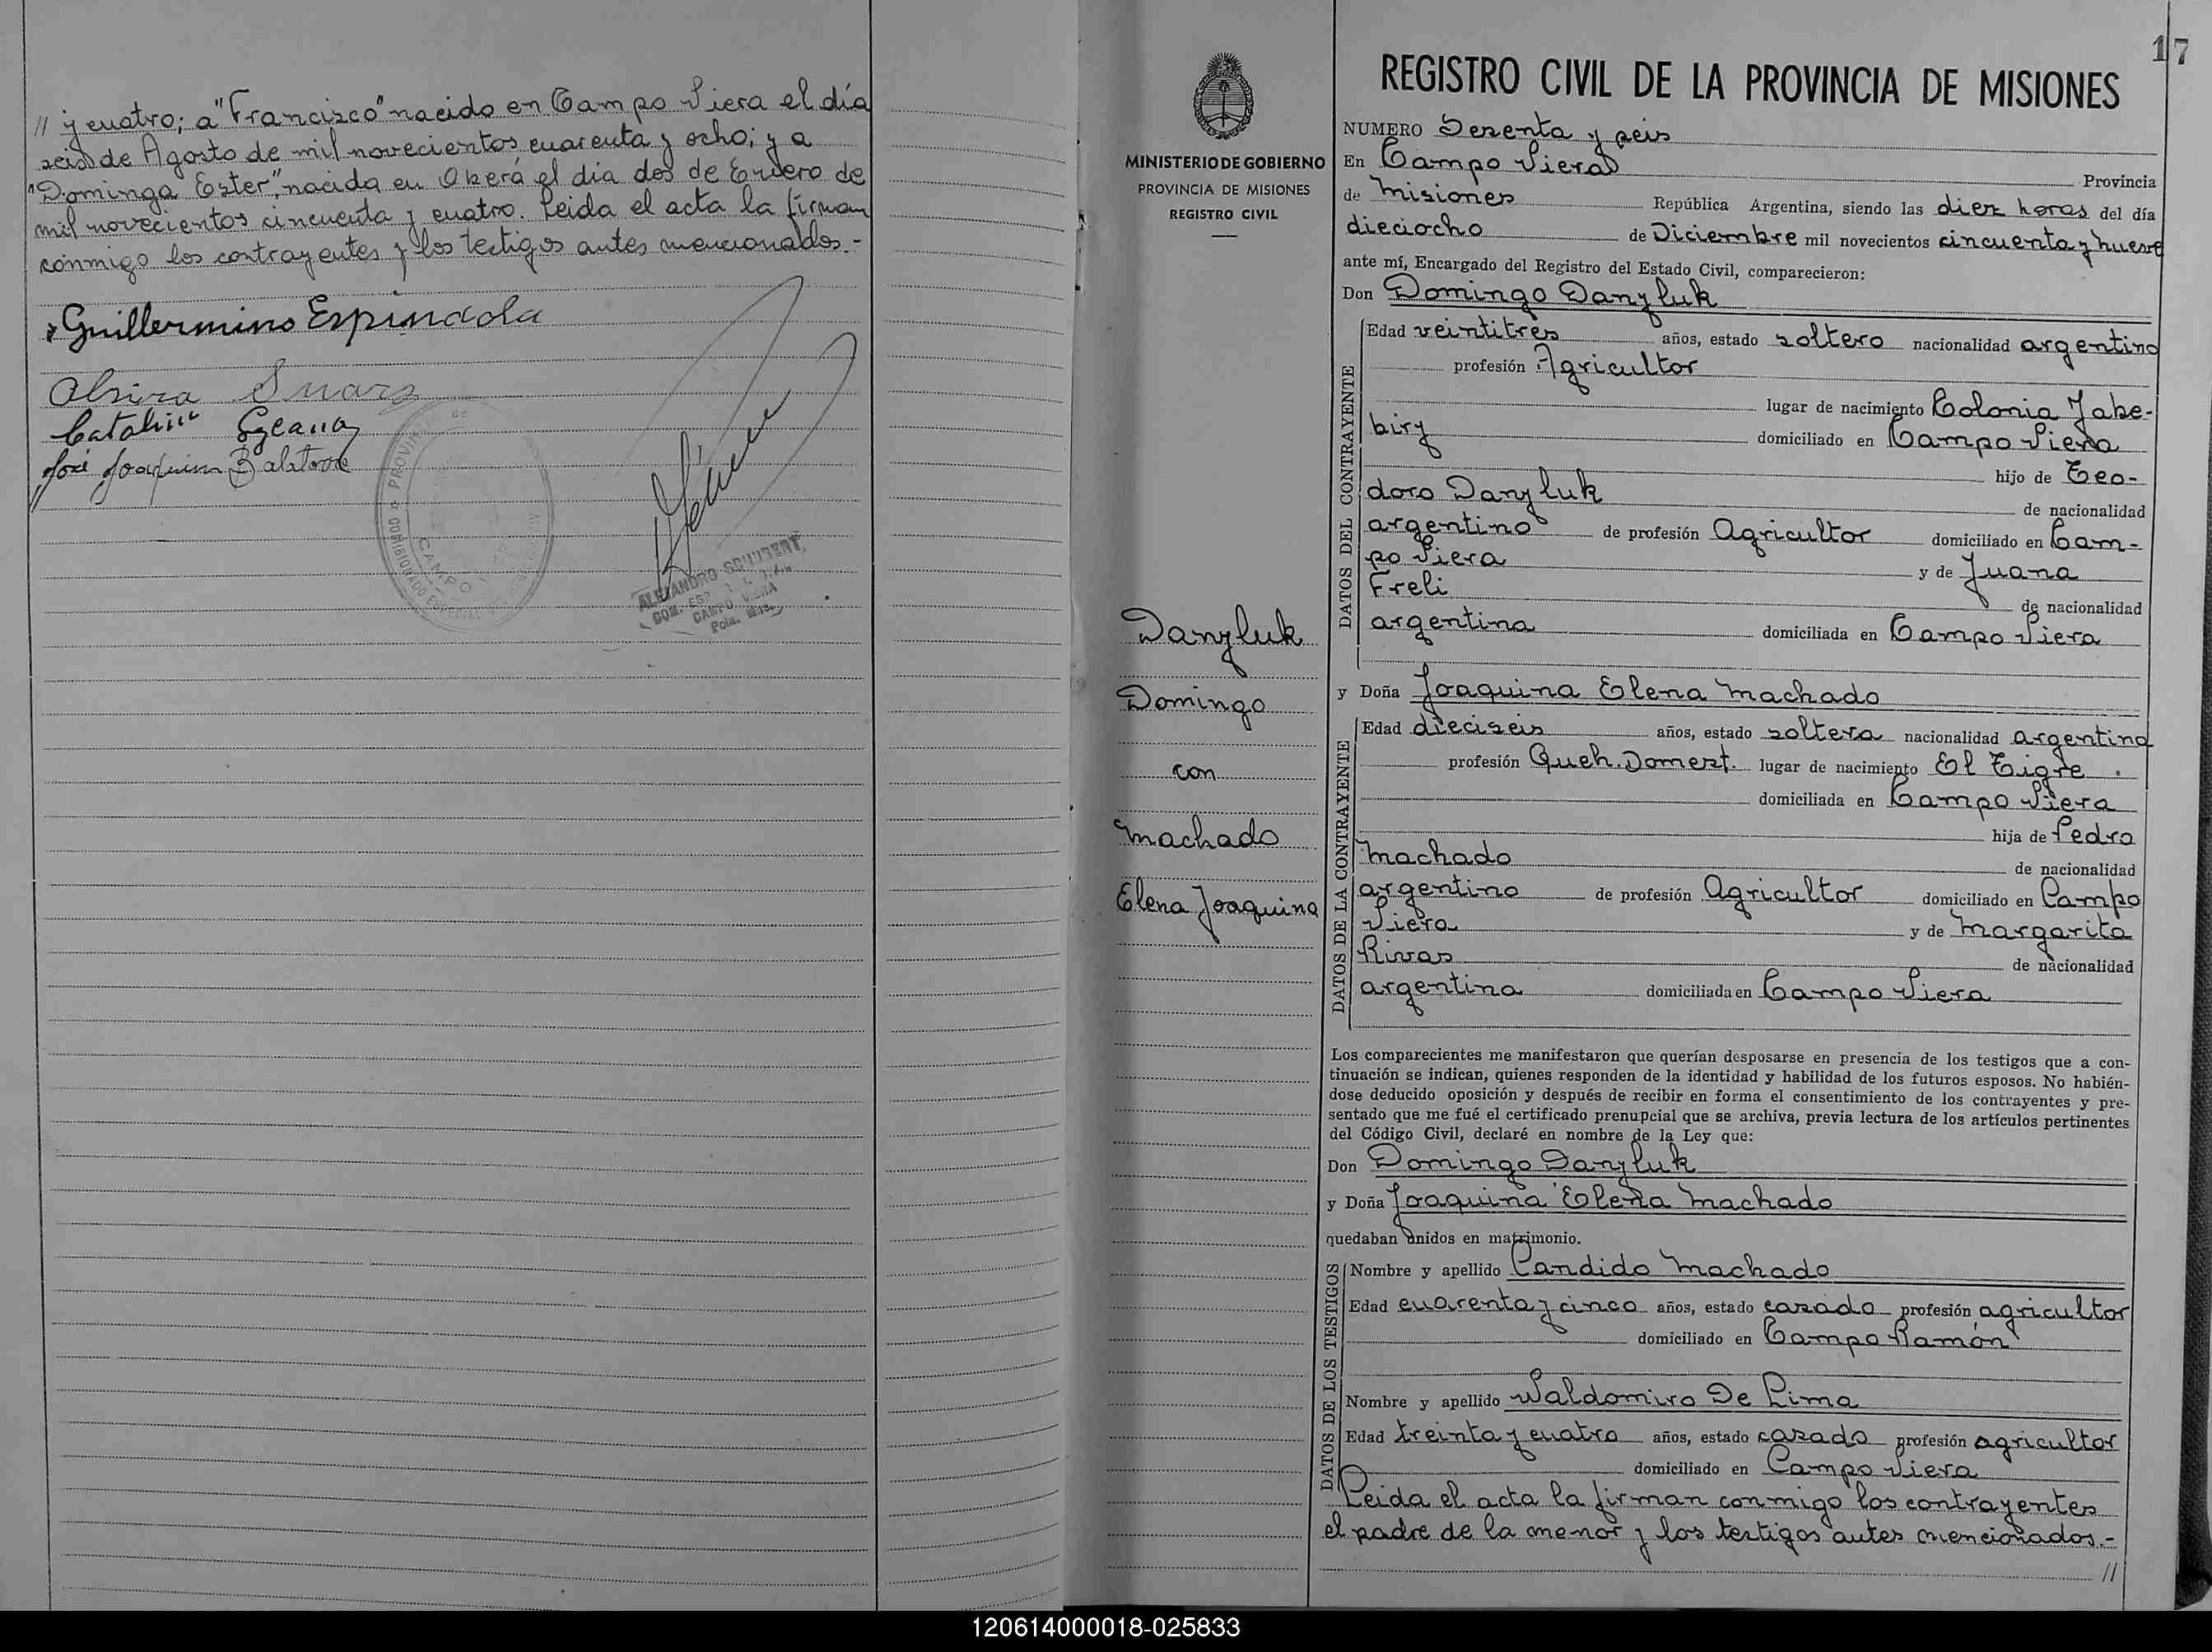 // y cuatro; a "Francisco" nacido en Campo Viera el día
seis de Agosto de mil novecientos cuarenta y ocho; y a
"Dominga Ester", nacida en Oberá el día dos de Enero de
mil novecientos cincuenta y cuatro. Leida el acta la firman
conmigo los contrayentes y los testigos antes mencionados.-
Guillermino Espindola
Alsira Suarz
José Joaquim Balatroe
CAMPO
ALEJANDRO SCHUBERT
CAMPO VIERA
17
REGISTRO CIVIL DE LA PROVINCIA DE MISIONES
MINISTERIO DE GOBIERNO
PROVINCIA DE MISIONES
REGISTRO CIVIL
Danyluk
Domingo
con
Machado
Elena Joaquina
NUMERO Sesenta y seis
En Campo Viera Provincia
de Misiones República Argentina, siendo las diez horas del día
dieciocho de Diciembre mil novecientos cincuenta y nueve
ante mí, Encargado del Registro del Estado Civil, comparecieron:
Don Domingo Danyluk
DATOS DEL CONTRAYENTE
Edad veintitres años, estado soltero nacionalidad argentino
profesión Agricultor
lugar de nacimiento Colonia Yabe-
biry domiciliado en Campo Viera
hijo de Teo-
doro Danyluk de nacionalidad
argentino de profesión Agricultor domiciliado en Cam-
po Viera y de Juana
Freli de nacionalidad
argentina domiciliada en Campo Viera
y Doña Joaquina Elena Machado
DATOS DE LA CONTRAYENTE
Edad dieciseis años, estado soltera nacionalidad argentina
profesión Queh. Domest. lugar de nacimiento El Tigre.
domiciliada en Campo Viera
hija de Pedro
Machado de nacionalidad
argentino de profesión Agricultor domiciliado en Campo
Viera y de Margarita
Rivas de nacionalidad
argentina domiciliada en Campo Viera
Los comparecientes me manifestaron que querían desposarse en presencia de los testigos que a con-
tinuación se indican, quienes responden de la identidad y habilidad de los futuros esposos. No habién-
dose deducido oposición y después de recibir en forma el consentimiento de los contrayentes y pre-
sentado que me fué el certificado prenupcial que se archiva, previa lectura de los artículos pertinentes
del Código Civil, declaré en nombre de la Ley que:
Don Domingo Danyluk
y Doña Joaquina Elena Machado
quedaban unidos en matrimonio.
DATOS DE LOS TESTIGOS
Nombre y apellido Candido Machado
Edad cuarenta y cinco años, estado casado profesión agricultor
domiciliado en Campo Ramón
Nombre y apellido Waldomiro De Lima
Edad treinta y cuatro años, estado casado profesión agricultor
domiciliado en Campo Viera
Leida el acta la firman conmigo los contrayentes
el padre de la menor y los testigos antes mencionados.-
//
120614000018-025833